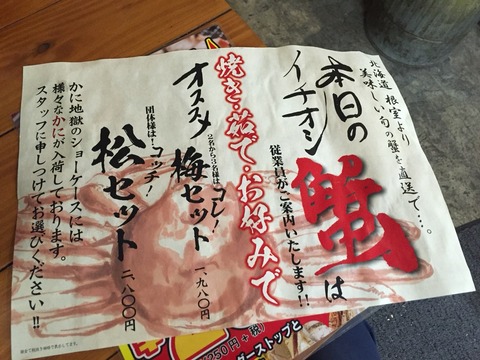 北海道 根室より
美味しい旬の蟹を直送で…。
本日の
イチオシ
蟹は
従業員がご案内いたします!!
焼き・茹で・お好みで
2名から3名様はコレ!
オススメ 梅セット 一、九八〇円
団体様は!コッチ!
松セット 二、八〇〇円
かに地獄のショーケースには
様々なかにが入荷しております。
スタッフに申しつけてお選びください!!
250円+税)
ダーストップと